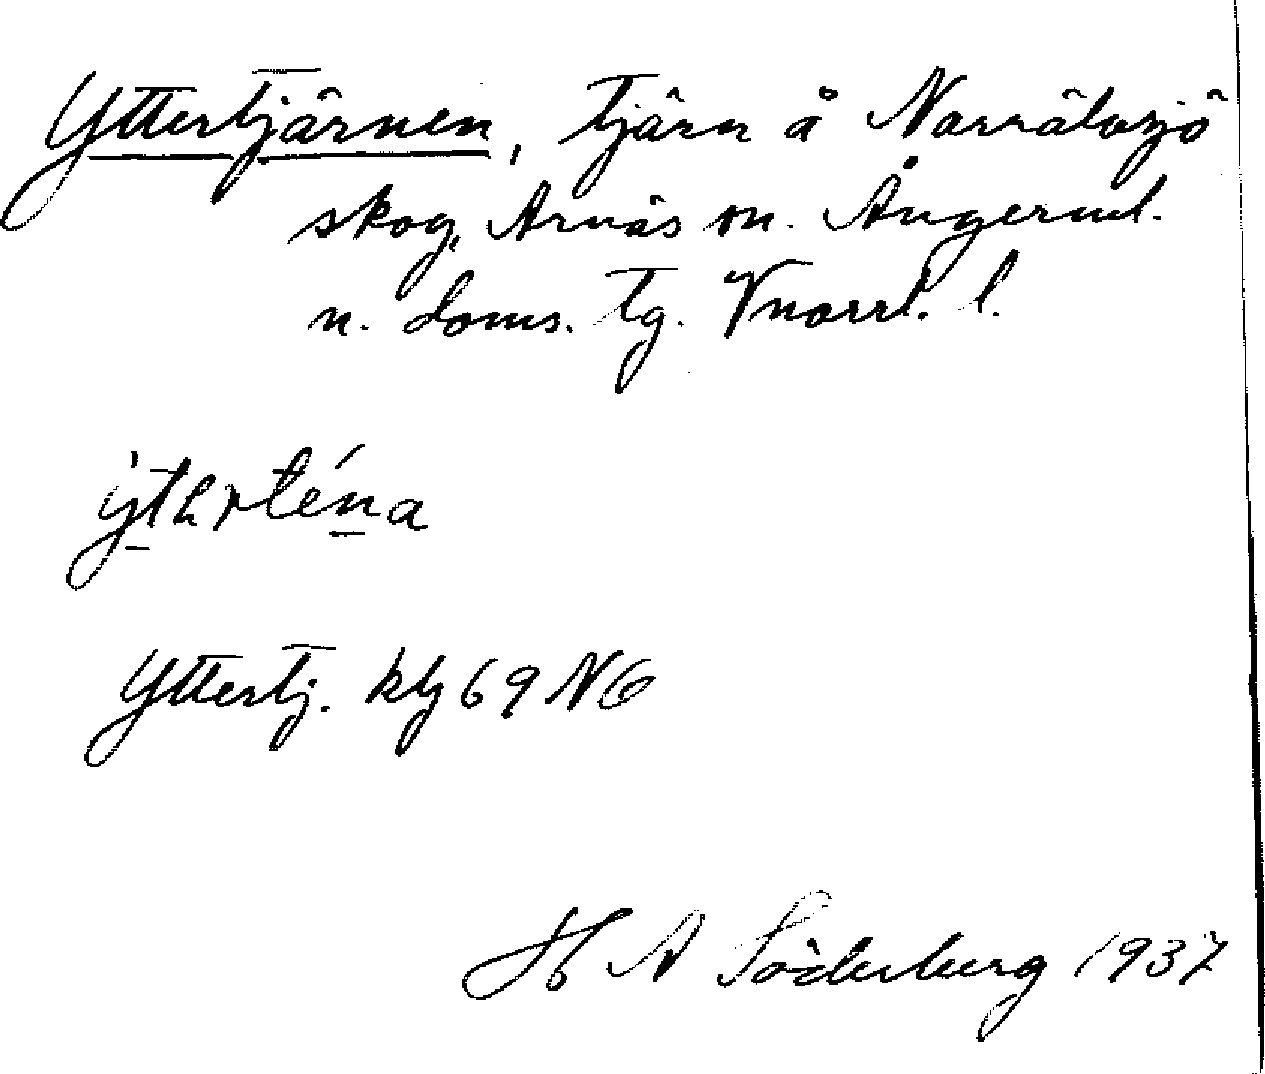 Yttertjärnen, tjärn å Norrälvsjö
skog, Arnäs sn. Ångerml.
n. doms. tg. Vnorrl. l.
Yttertj. kbl 69 NO
H A Söderberg 1937